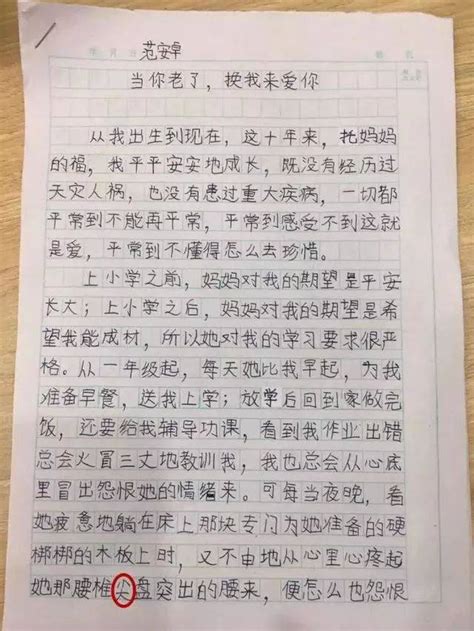 范安卓
当你老了，换我来爱你
从我出生到现在，这十年来，托妈妈
的福，我平平安安地成长，既没有经历过
天灾人祸，也没有患过重大疾病，一切都
平常到不能再平常，平常到感受不到这就
是爱，平常到不懂得怎么去珍惜。
上小学之前，妈妈对我的期望是平安
长大；上小学之后，妈妈对我的期望是希
望我能成材，所以她对我的学习要求很严
格。从一年级起，每天她比我早起，为我
准备早餐，送我上学；放学后回到家做完
饭，还要给我辅导功课，看到我作业出错
总会火冒三丈地教训我，我也总会从心底
里冒出怨恨她的情绪来。可每当夜晚，看
她疲惫地躺在床上那块专门为她准备的硬
梆梆的木板上时，又不由地从心里心疼起
她那腰椎尖盘突出的腰来，便怎么也怨恨